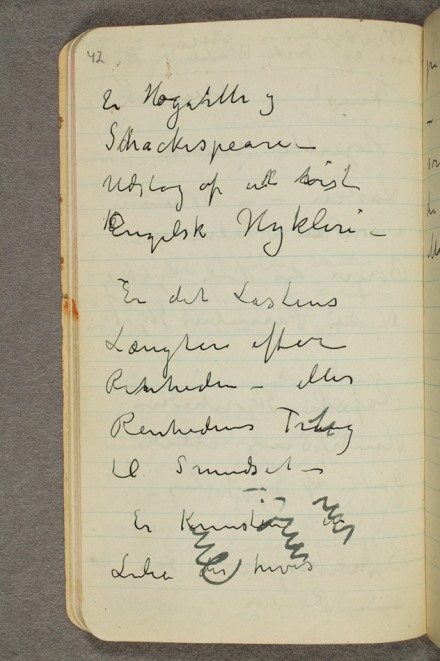 42
Er Hogarth og
Schackespeare –
Udslag af
Engelsk Hykleri –
Er det Lastens
Længsen efter
Renheden – eller
Renhedens Trang
til Smudset –
Er Kunsten